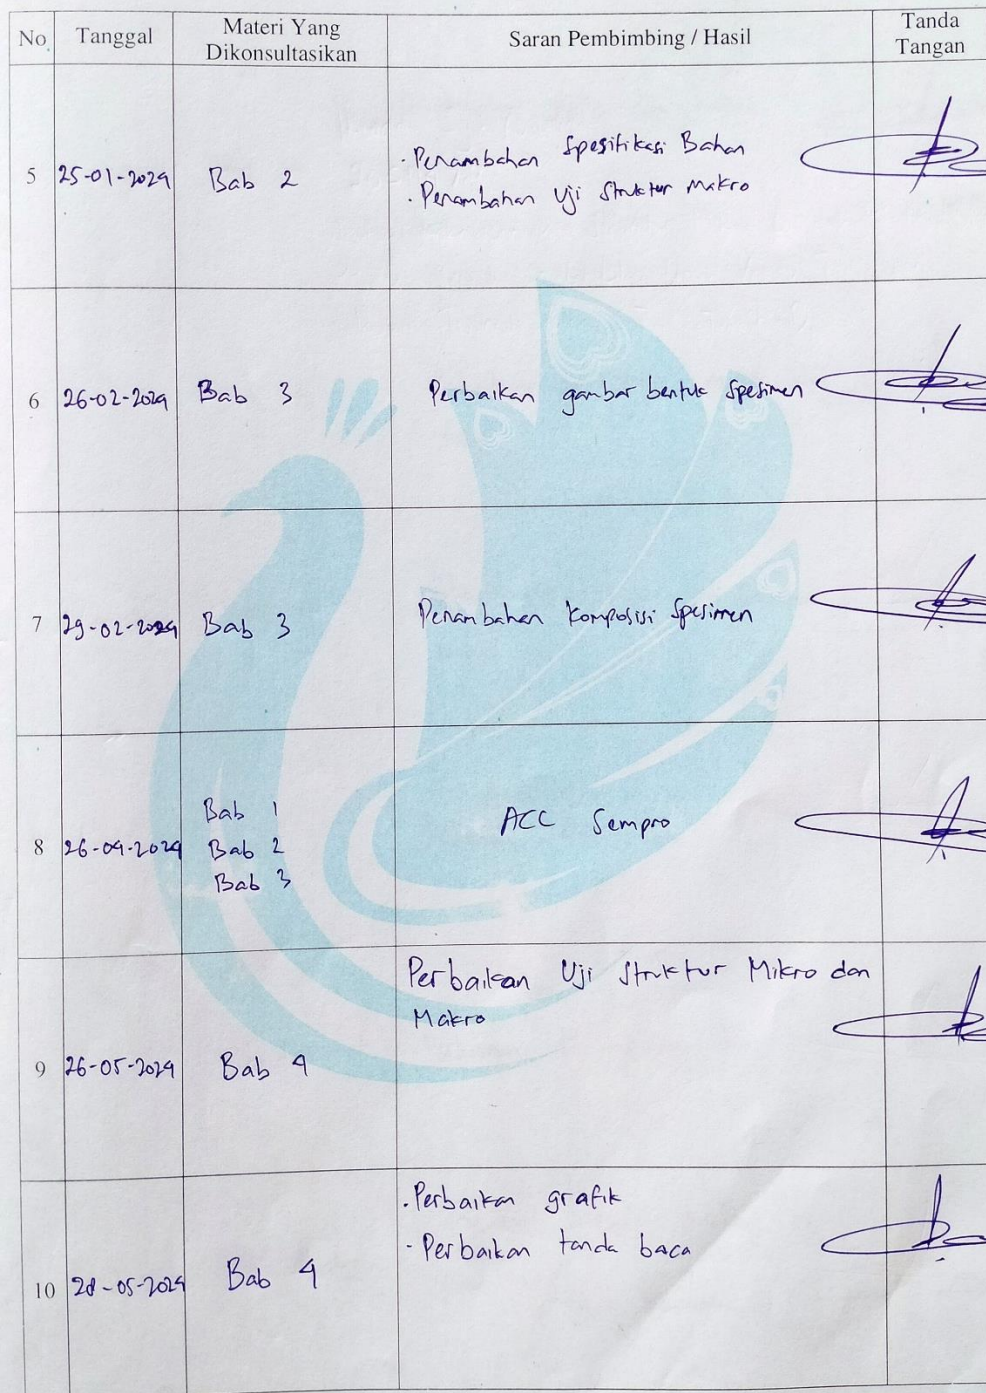 No. Tanggal Materi Yang Dikonsultasikan Saran Pembimbing / Hasil Tanda Tangan
5 25-01-2024 Bab 2 · Penambahan Spesifikasi Bahan
· Penambahan Uji Struktur Makro
6 26-02-2024 Bab 3 Perbaikan gambar bentuk Spesimen
7 29-02-2024 Bab 3 Penambahan Komposisi Spesimen
Bab 1
8 26-04-2024 Bab 2 ACC Sempro
Bab 3
Perbaikan Uji Struktur Mikro dan
Makro
9 26-05-2024 Bab 4
· Perbaikan grafik
· Perbaikan tanda baca
10 28-05-2024 Bab 4